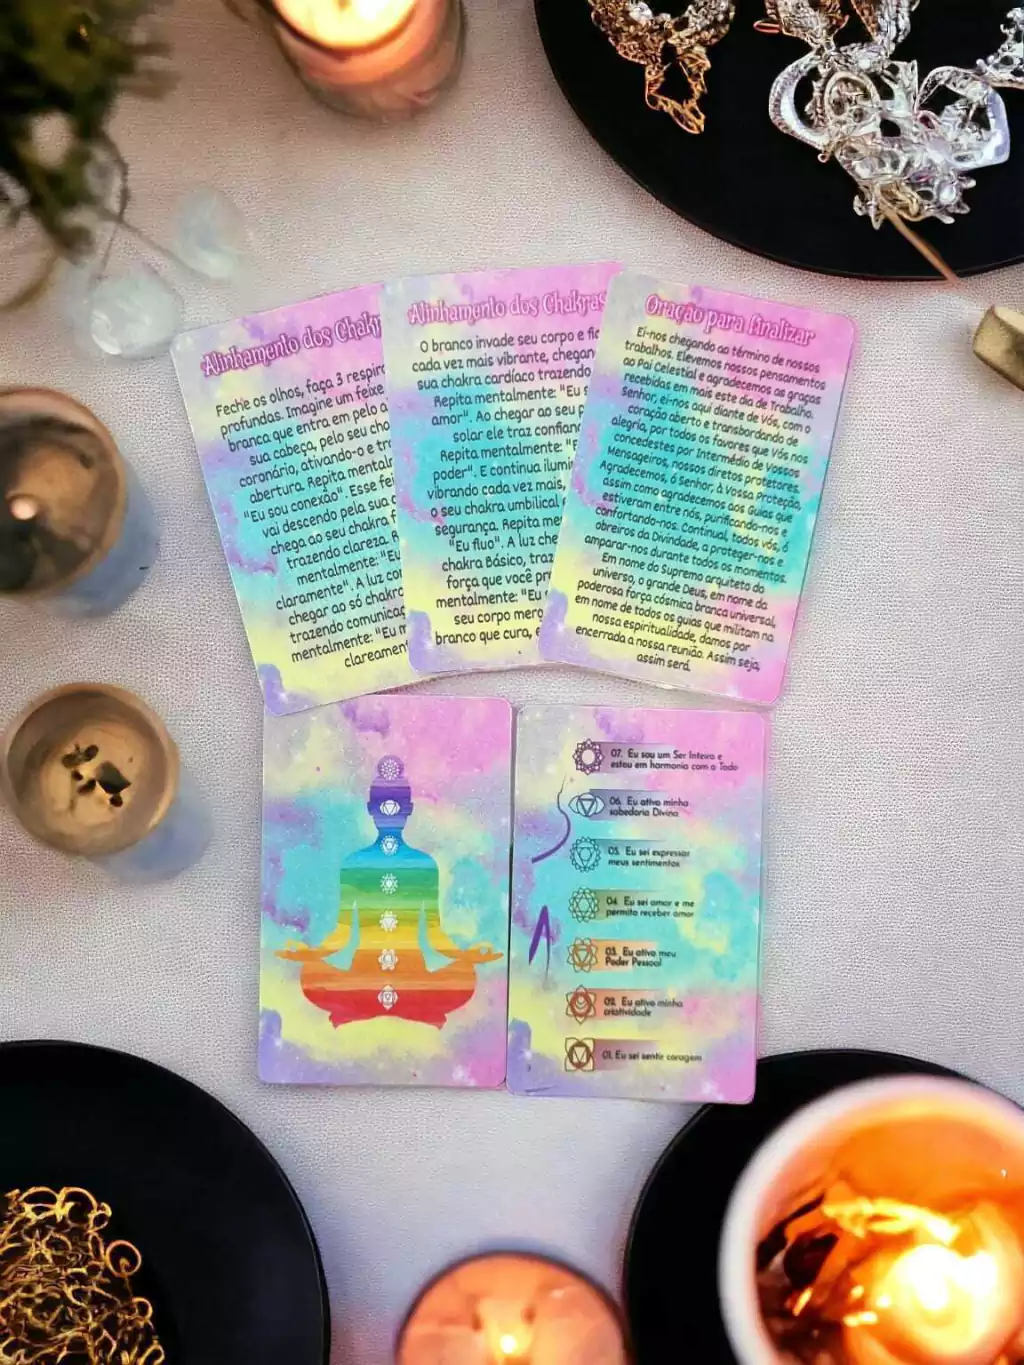 Alinhamento dos Chakr
Feche os olhos, faça 3 respira
profundas. Imagine um feixe
branca que entra em pelo a
sua cabeça, pelo seu cha
coronário, ativando-o e tr
abertura. Repita mental
"Eu sou conexão". Esse fei
vai descendo pela sua c
chega ao seu chakra f
trazendo clareza. R
mentalmente: "Eu
claramente". A luz co
chegar ao só chakra
trazendo comunica
mentalmente: "Eu m
clareament
Alinhamento dos Chakras
O branco invade seu corpo e fic
cada vez mais vibrante, chegan
sua chakra cardíaco trazendo
Repita mentalmente: "Eu s
amor". Ao chegar ao seu p
solar ele traz confian
Repita mentalmente: "E
poder". E continua ilumi
vibrando cada vez mais,
o seu chakra umbilical
segurança. Repita me
"Eu fluo". A luz che
chakra Básico, traz
força que você pr
mentalmente: "Eu
seu corpo merg
branco que cura, e
Oração para finalizar
Ei-nos chegando ao término de nossos
trabalhos. Elevemos nossos pensamentos
ao Pai Celestial e agradecemos as graças
recebidas em mais este dia de Trabalho.
Senhor, ei-nos aqui diante de Vós, com o
coração aberto e transbordando de
alegria, por todos os favores que Vós nos
concedestes por Intermédio de Vossos
Mensageiros, nossos diretos protetores.
Agradecemos, ó Senhor, à Vossa Proteção,
assim como agradecemos aos Guias que
estiveram entre nós, purificando-nos e
confortando-nos. Continuai, todos vós, ó
obreiros da Divindade, a proteger-nos e
amparar-nos durante todos os momentos.
Em nome do Supremo arquiteto do
universo, o grande Deus, em nome da
poderosa força cósmica branca universal,
em nome de todos os guias que militam na
nossa espiritualidade, damos por
encerrada a nossa reunião. Assim seja,
assim será.
07. Eu sou um Ser Inteiro e
estou em harmonia com o Todo
06. Eu ativo minha
sabedoria Divina
05. Eu sei expressar
meus sentimentos
04. Eu sei amar e me
permito receber amor
03. Eu ativo meu
Poder Pessoal
02. Eu ativo minha
criatividade
01. Eu sei sentir coragem